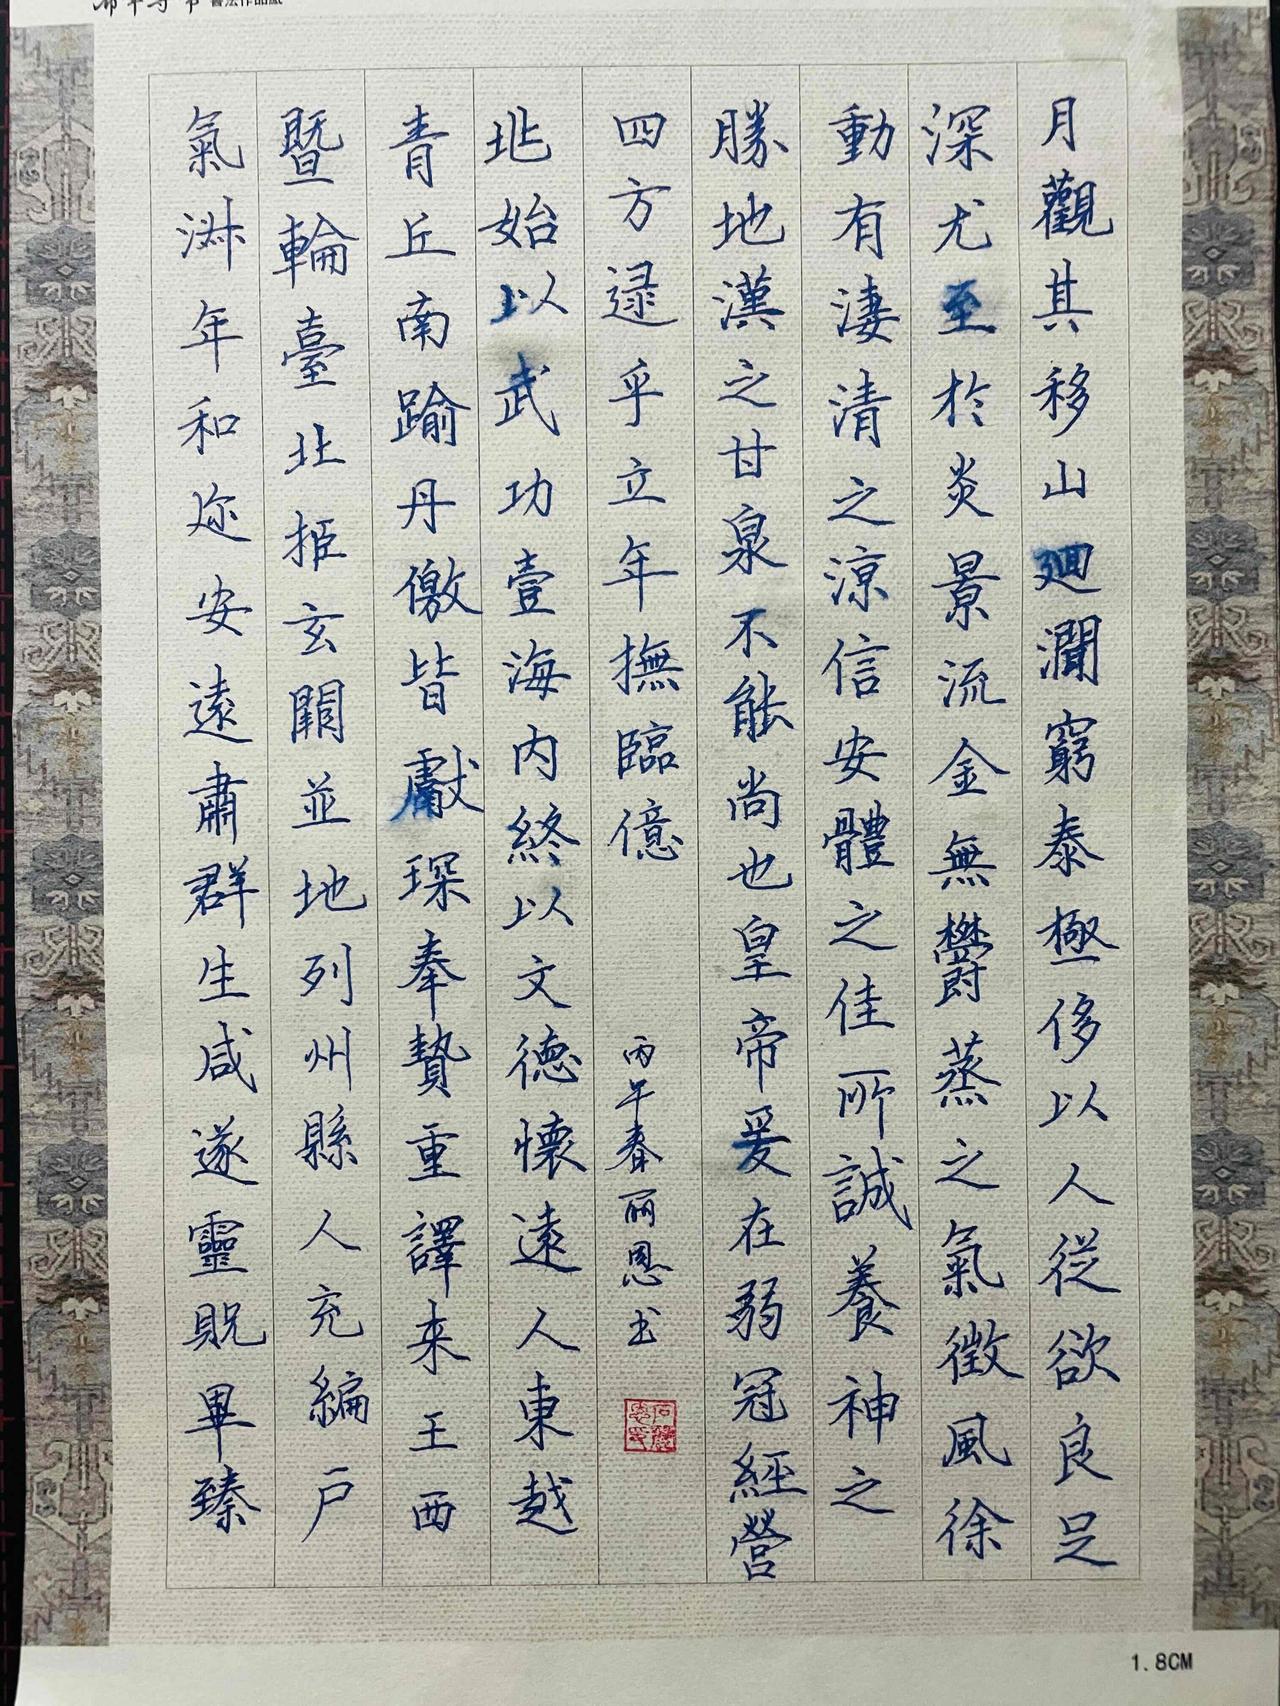 月觀其移山廻瀾窮泰極侈以人從欲良足
深尤至於炎景流金無欝蒸之氣微風徐
動有淒清之涼信安體之佳所誠養神之
勝地漢之甘泉不能尚也皇帝爰在弱冠經營
四方逯乎立年撫臨億
丙午春丽恩书
兆始以武功壹海内終以文德懷遠人東越
青丘南踰丹儌皆獻琛奉贄重譯来王西
暨輪臺北拒玄闕並地列州縣人充編户
氣淋年和迩安遠肅群生咸遂靈貺畢臻
1.8CM